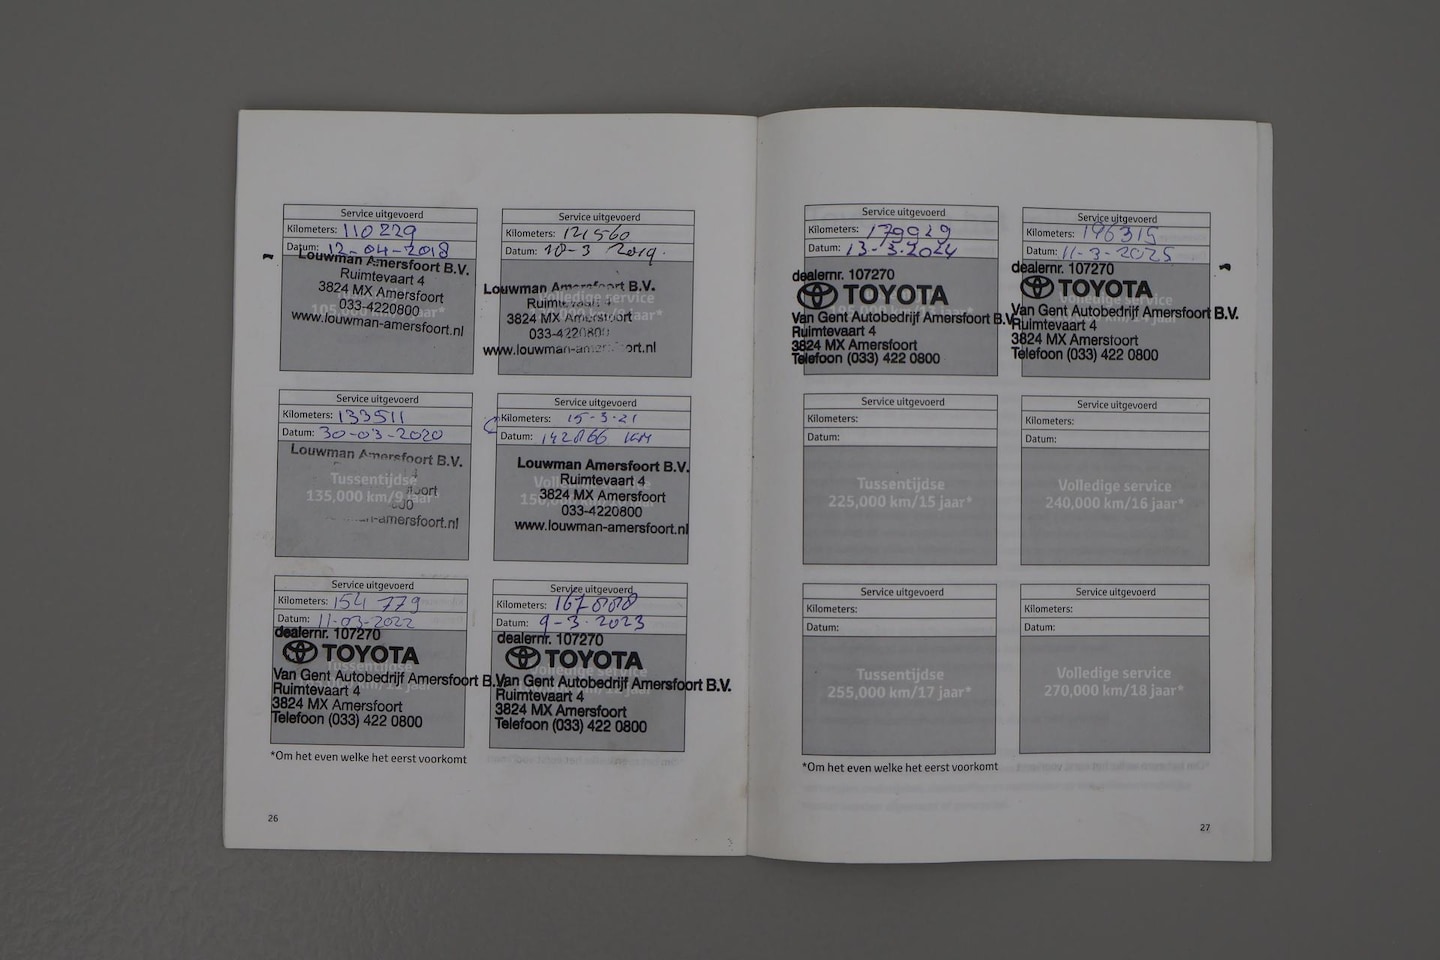 Service uitgevoerd
Kilometers: 110229
Datum: 12-04-2018
Louwman Amersfoort B.V.
Ruimtevaart 4
3824 MX Amersfoort
033-4220800
www.louwman-amersfoort.nl
Service uitgevoerd
Kilometers: 121560
Datum: 10-3 2019.
Volledige service
Louwman Amersfoort B.V.
Ruimtevaart 4
3824 MX Amersfoort
033-4220800
www.louwman-amersfoort.nl
Service uitgevoerd
Kilometers: 133511
Datum: 30-03-2020
Louwman Amersfoort B.V.
Tussentijdse
135,000 km/9 jaar*
Service uitgevoerd
Kilometers: 15-3-21
Datum: 142866 KM
Louwman Amersfoort B.V.
Ruimtevaart 4
3824 MX Amersfoort
033-4220800
www.louwman-amersfoort.nl
Service uitgevoerd
Kilometers: 154 779
Datum: 11-03-2022
dealernr. 107270
TOYOTA
Tussentijdse
Van Gent Autobedrijf Amersfoort B.V.
Ruimtevaart 4
3824 MX Amersfoort
Telefoon (033) 422 0800
Service uitgevoerd
Kilometers: 167888
Datum: 9-3-2023
dealernr. 107270
TOYOTA
Volledige service
Van Gent Autobedrijf Amersfoort B.V.
Ruimtevaart 4
3824 MX Amersfoort
Telefoon (033) 422 0800
*Om het even welke het eerst voorkomt
26
Service uitgevoerd
Kilometers: 179929
Datum: 13-3-2024
dealernr. 107270
TOYOTA
Van Gent Autobedrijf Amersfoort B.V.
Ruimtevaart 4
3824 MX Amersfoort
Telefoon (033) 422 0800
Service uitgevoerd
Kilometers: 196315
Datum: 11-3-2025
dealernr. 107270
TOYOTA
Volledige service
Van Gent Autobedrijf Amersfoort B.V.
Ruimtevaart 4
3824 MX Amersfoort
Telefoon (033) 422 0800
Service uitgevoerd
Kilometers:
Datum:
Tussentijdse
225,000 km/15 jaar*
Service uitgevoerd
Kilometers:
Datum:
Volledige service
240,000 km/16 jaar*
Service uitgevoerd
Kilometers:
Datum:
Tussentijdse
255,000 km/17 jaar*
Service uitgevoerd
Kilometers:
Datum:
Volledige service
270,000 km/18 jaar*
*Om het even welke het eerst voorkomt
27